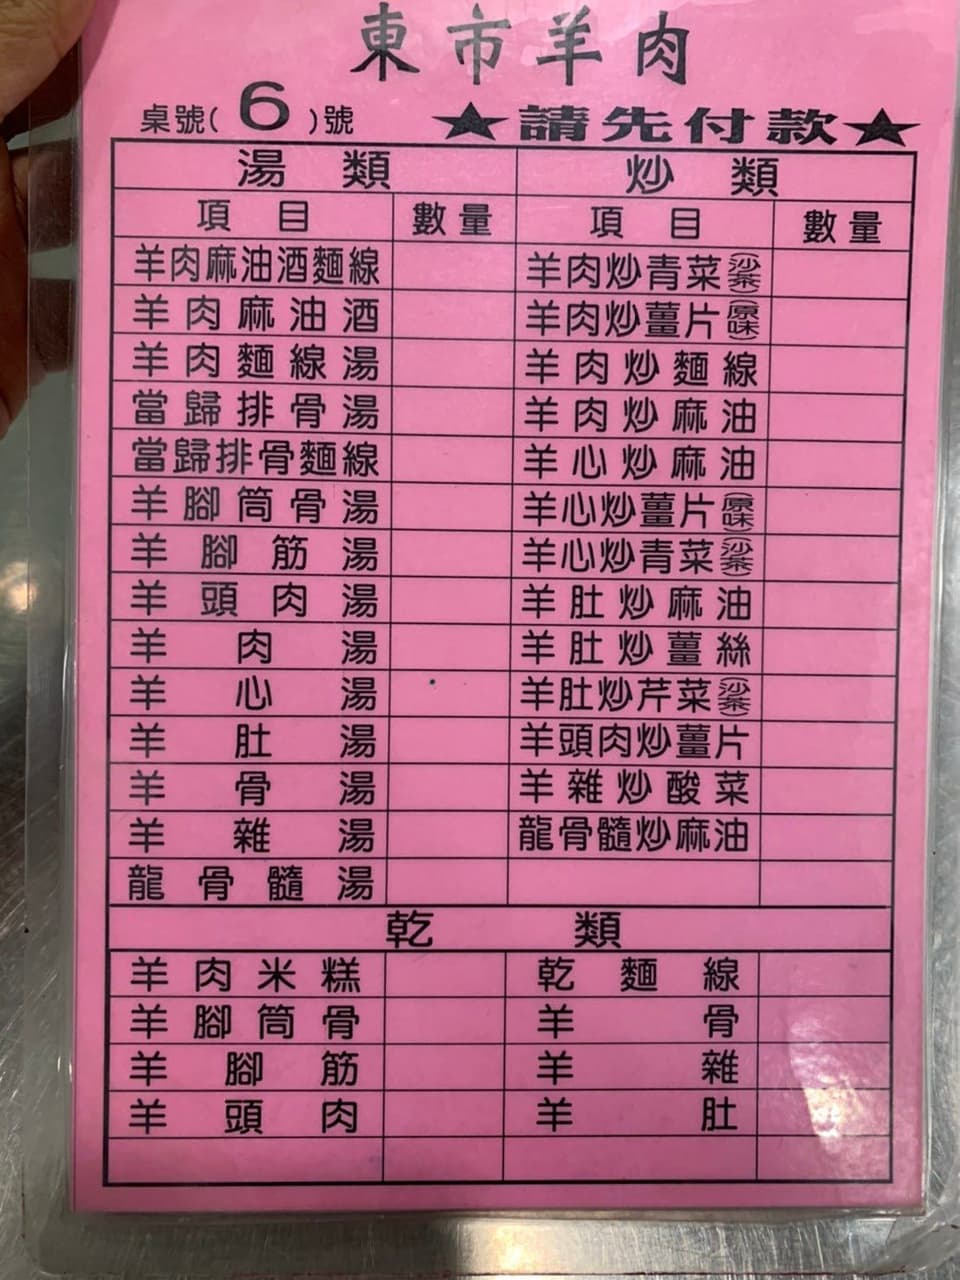 東市羊肉
桌號( 6 )號 ★請先付款★
湯類 炒類
項目 數量 項目 數量
羊肉麻油酒麵線 羊肉炒青菜(沙茶)
羊肉麻油酒 羊肉炒薑片(原味)
羊肉麵線湯 羊肉炒麵線
當歸排骨湯 羊肉炒麻油
當歸排骨麵線 羊心炒麻油
羊腳筒骨湯 羊心炒薑片(原味)
羊腳筋湯 羊心炒青菜(沙茶)
羊頭肉湯 羊肚炒麻油
羊肉湯 羊肚炒薑絲
羊心湯 羊肚炒芹菜(沙茶)
羊肚湯 羊頭肉炒薑片
羊骨湯 羊雜炒酸菜
羊雜湯 龍骨髓炒麻油
龍骨髓湯
乾類
羊肉米糕 乾麵線
羊腳筒骨 羊骨
羊腳筋 羊雜
羊頭肉 羊肚